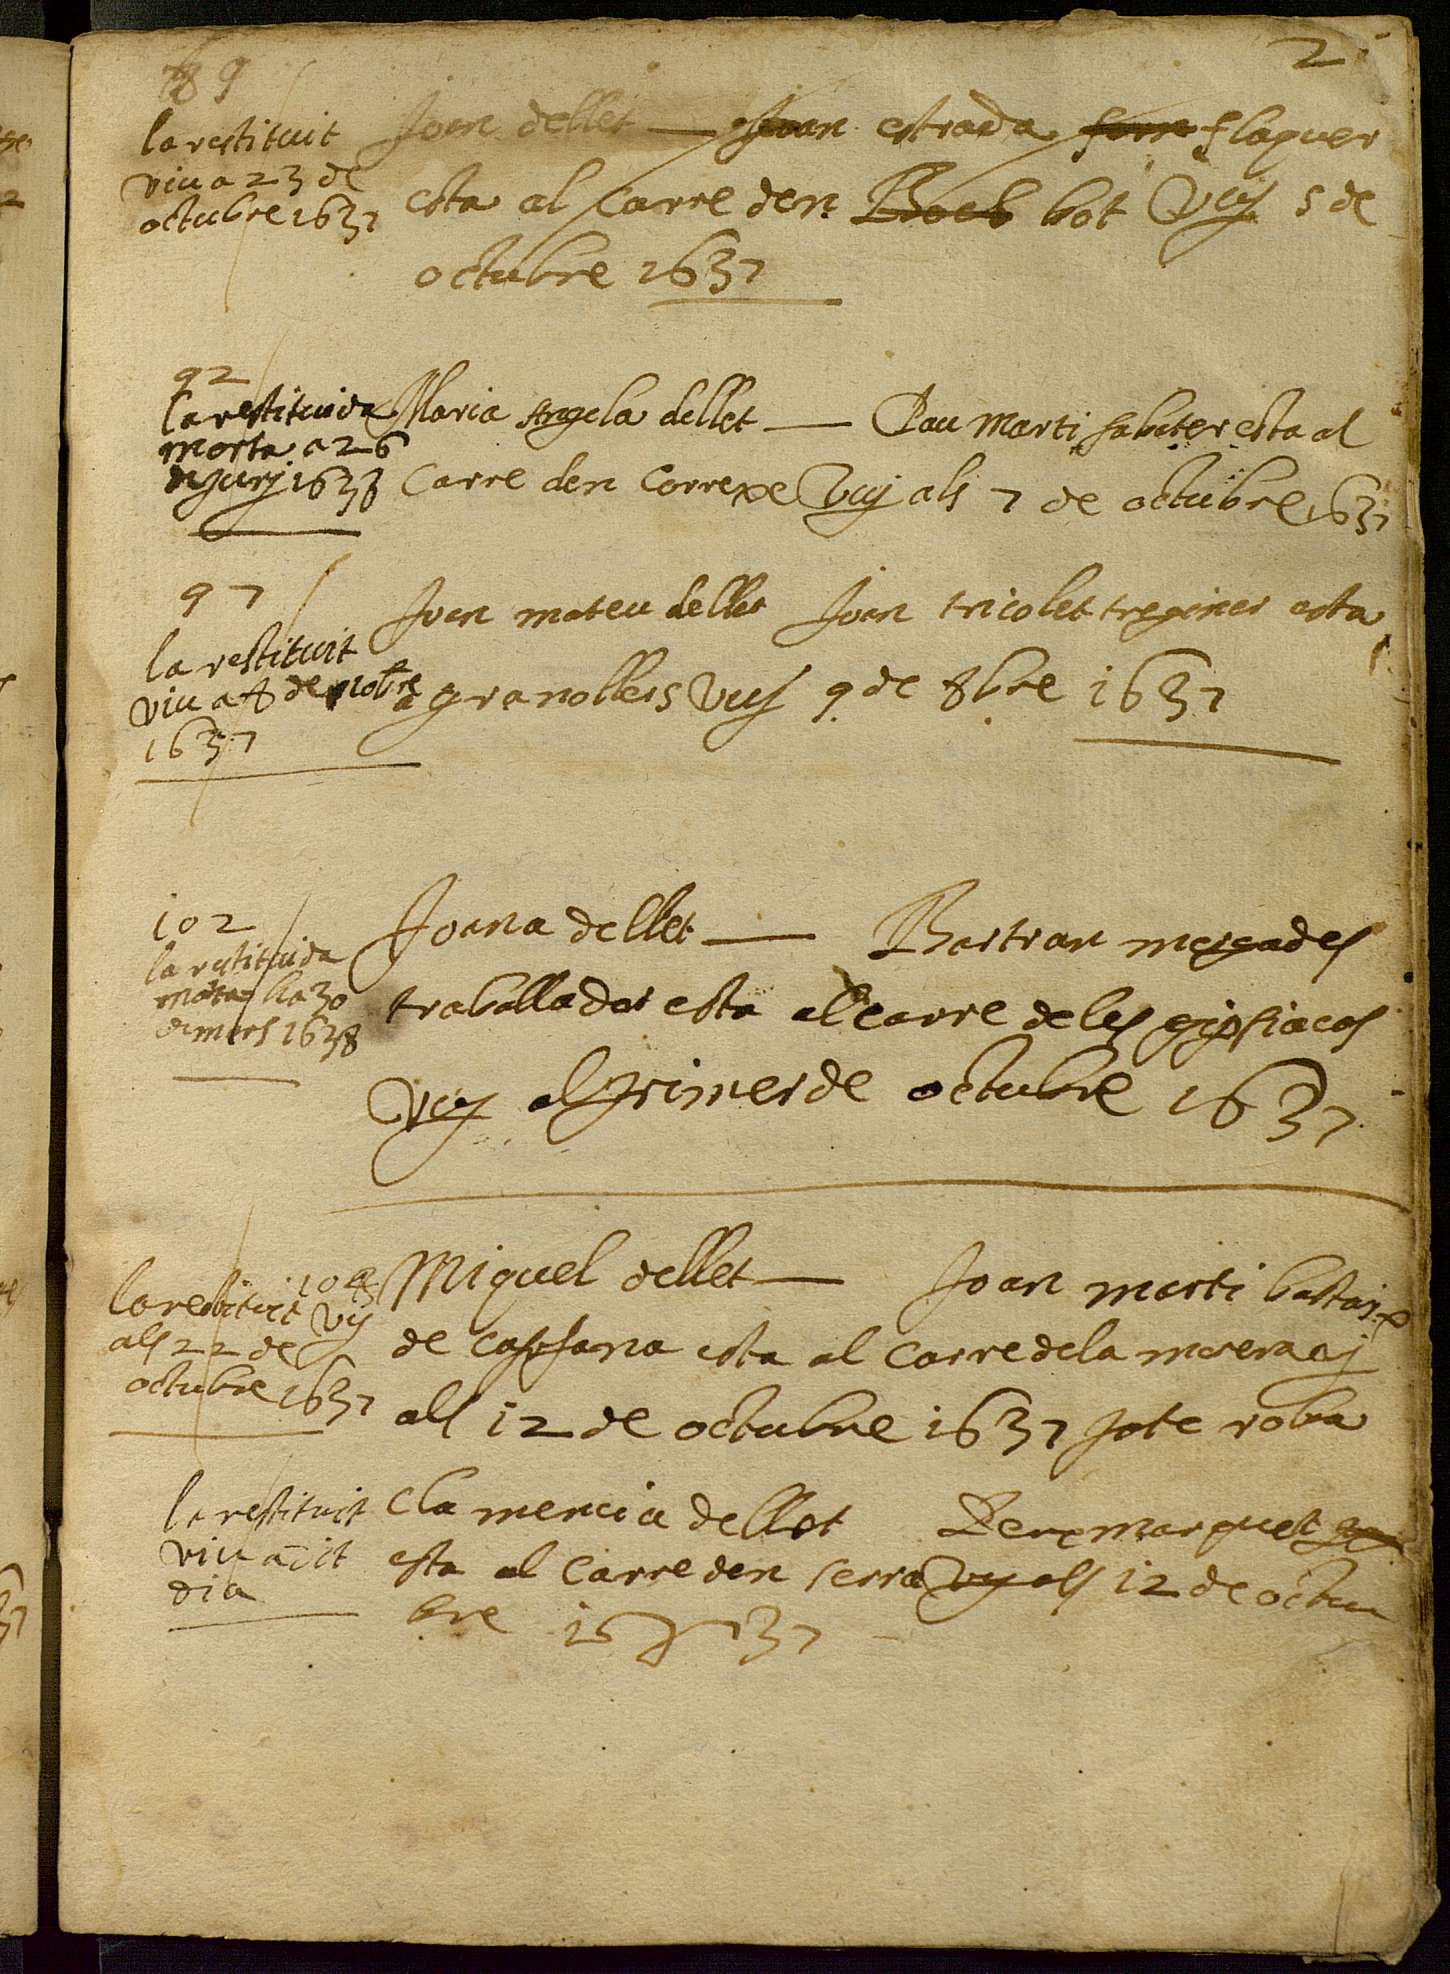 2
89
la restituit
viu a 23 de
octubre 1637
Joan dellet — Joan estrada forn flaquer
esta al carre den Boeb bot Vuy 5 de
octubre 1637
92
la restituida
morta a 26
de Juny 1638
Maria Angela dellet — Pau Marti sabater esta al
Carre den Correxe Vuy als 7 de octubre 1637
97
la restituit
viu a 8 de nobre
1637
Joan mateu dellet Joan tricolet treginer esta
a granollers Vuy 9 de 8bre 1637
102
la restituida
morta ha 30
de mars 1638
Joana dellet — Bertran mercades
traballador esta al carre de les egipsiacas
Vuy al primer de octubre 1637
104
la restituit Vy
als 22 de
octubre 1637
Miguel dellet — Joan marti bastaix
de capsana esta al carre de la morera vj
als 12 de octubre 1637 pote roba
la restituit
viu a dit
dia
Clamencia dellet Pere marquet
esta al carre den serra Vy als 12 de octu
bre 1637